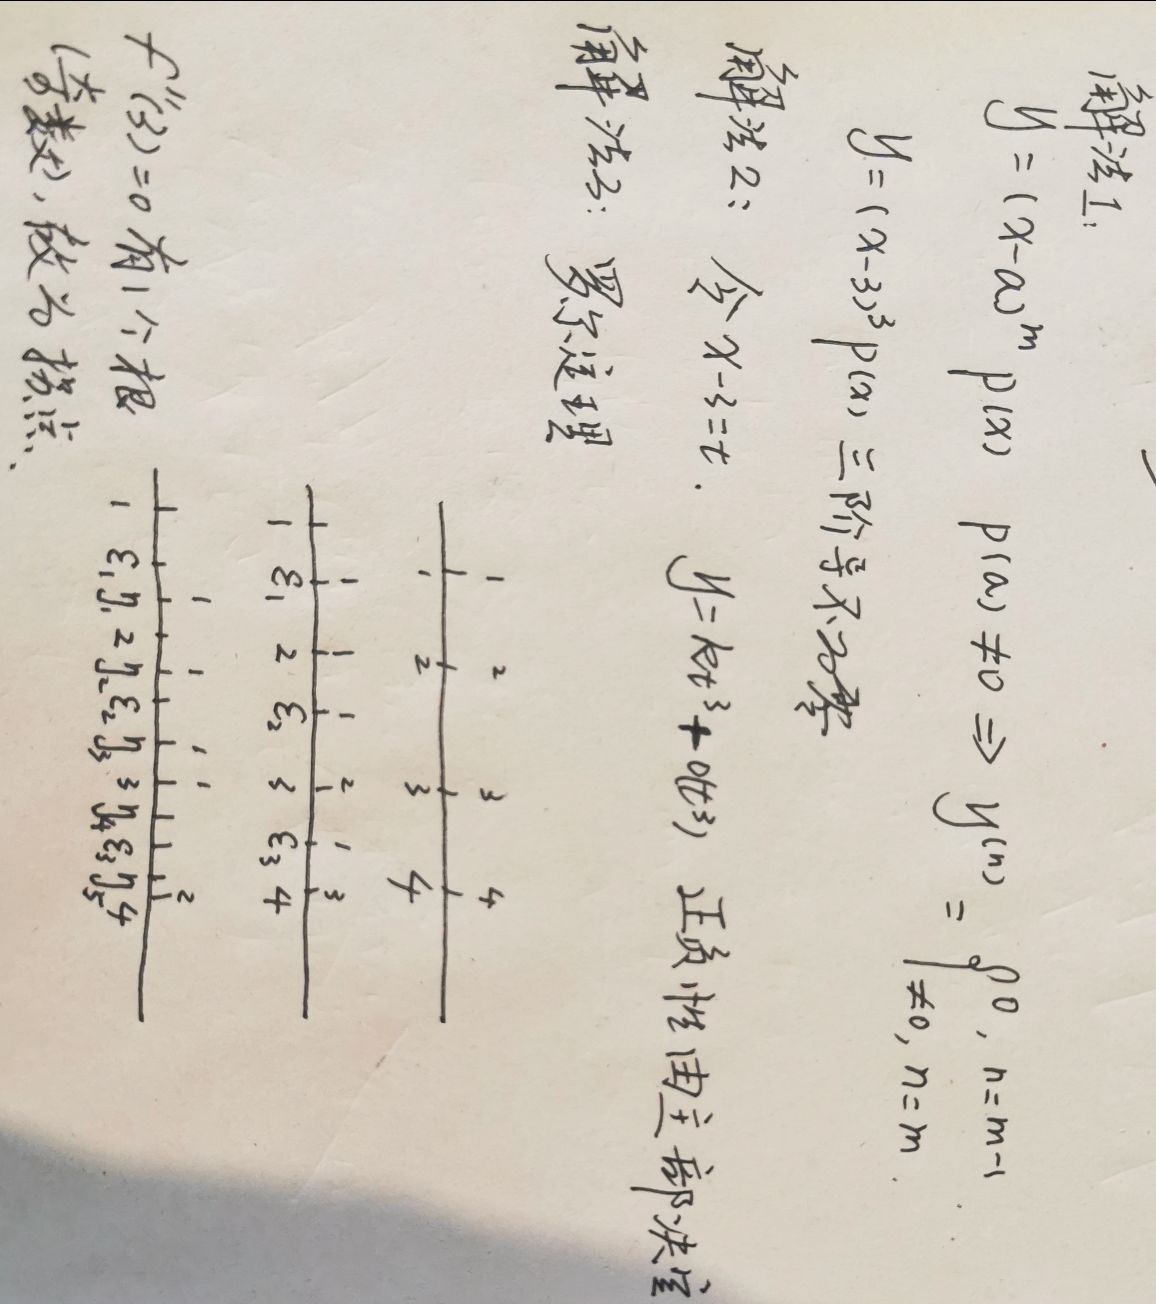 解法1:
y=(x-a)^m p(x) p(a)≠0 ⇒ y^(n) = { 0, n=m-1
≠0, n=m
y=(x-3)^3 p(x) 三阶导不为零
解法2: 令 x-3=t. y=kt^3+o(t^3) 正负性由主部决定
解法3: 罗尔定理
1 2 3 4
1 2 3 4
1 1 1 2 1 3
1 ξ1 2 ξ2 3 ξ3 4
1 1 1 1 2
1 ξ1 η1 2 η2 ξ2 η3 3 η4 ξ3 η5 4
f''(3)=0 有1个根
(奇数), 故为拐点.